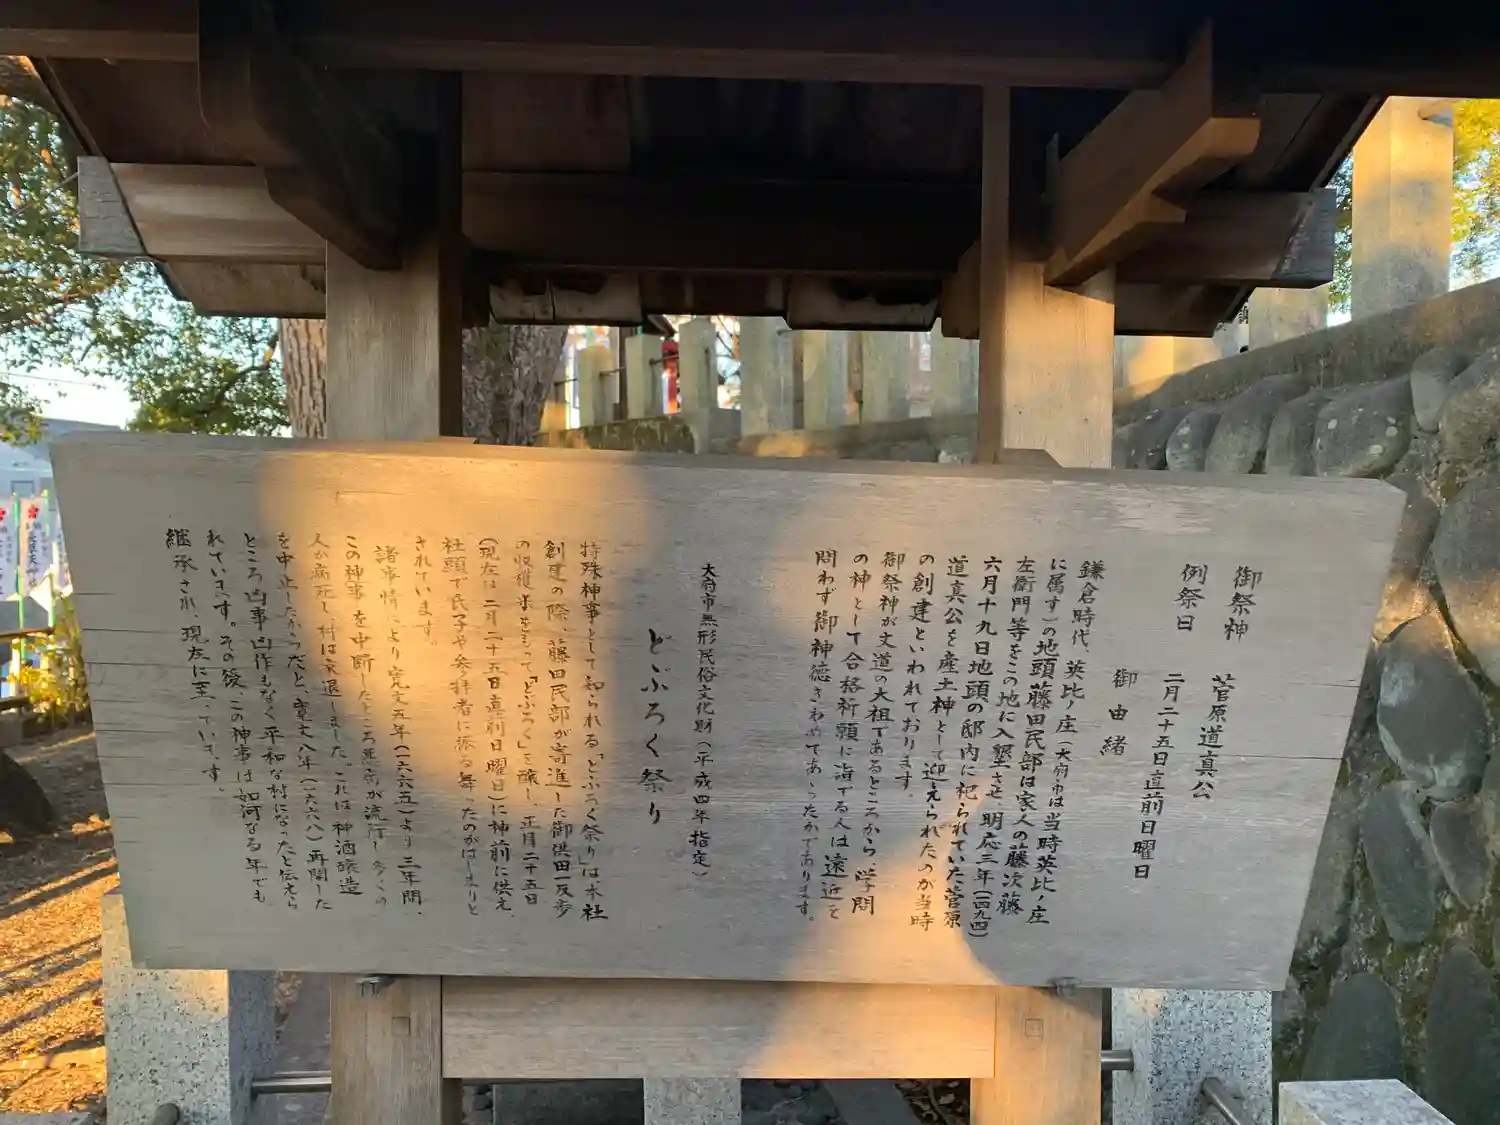 御祭神　菅原道真公
例祭日　二月二十五日直前日曜日
御由緒
鎌倉時代、英比ノ庄（大府市は当時英比ノ庄
に属す）の地頭藤田民部は家人の藤次藤
左衛門等をこの地に入墾させ、明応三年（一四九四）
六月十九日地頭の邸内に祀られていた菅原
道真公を産土神として迎えられたのが当時
の創建といわれております。
御祭神が文道の大祖であるところから、学問
の神として合格祈願に詣でる人は遠近を
問わず御神徳きわめてあらたかであります。
大府市無形民俗文化財（平成四年指定）
どぶろく祭り
特殊神事として知られる「どぶろく祭り」は本社
創建の際、藤田民部が寄進した御供田一反歩
の収穫米をもって「どぶろく」を醸し、正月二十五日
（現在は二月二十五日直前日曜日）に神前に供え、
社頭で氏子や参拝者に振る舞ったのがはじまりと
されています。
諸事情により寛文五年（一六六五）より三年間、
この神事を中断したところ悪病が流行し多くの
人が病死し、村は衰退しました。これは神酒醸造
を中止したからだと、寛文八年（一六六八）再開した
ところ凶事凶作もなく平和な村になったと伝えら
れています。その後、この神事は如何なる年でも
継承され、現在に至っています。